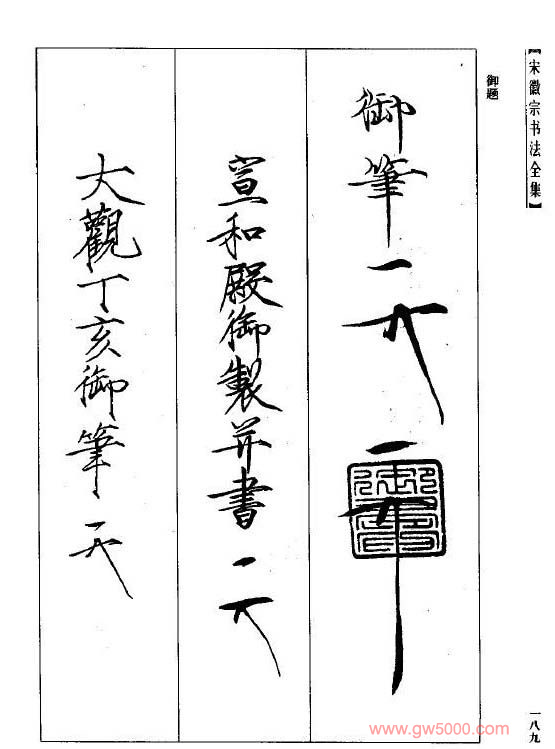 【宋徽宗书法全集】
御题
御筆
宣和殿御製并書
大觀丁亥御筆
一八九
www.gw5000.com